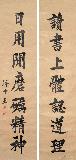 讀書上體認道理
日用間磨礪精神